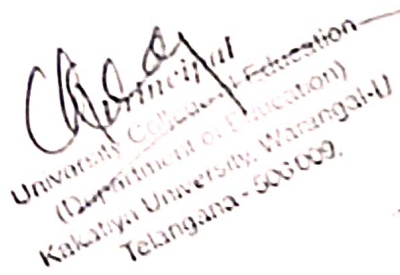 Principal
University College of Education
(Department of Education)
Kakatiya University, Warangal-U
Telangana - 506009.